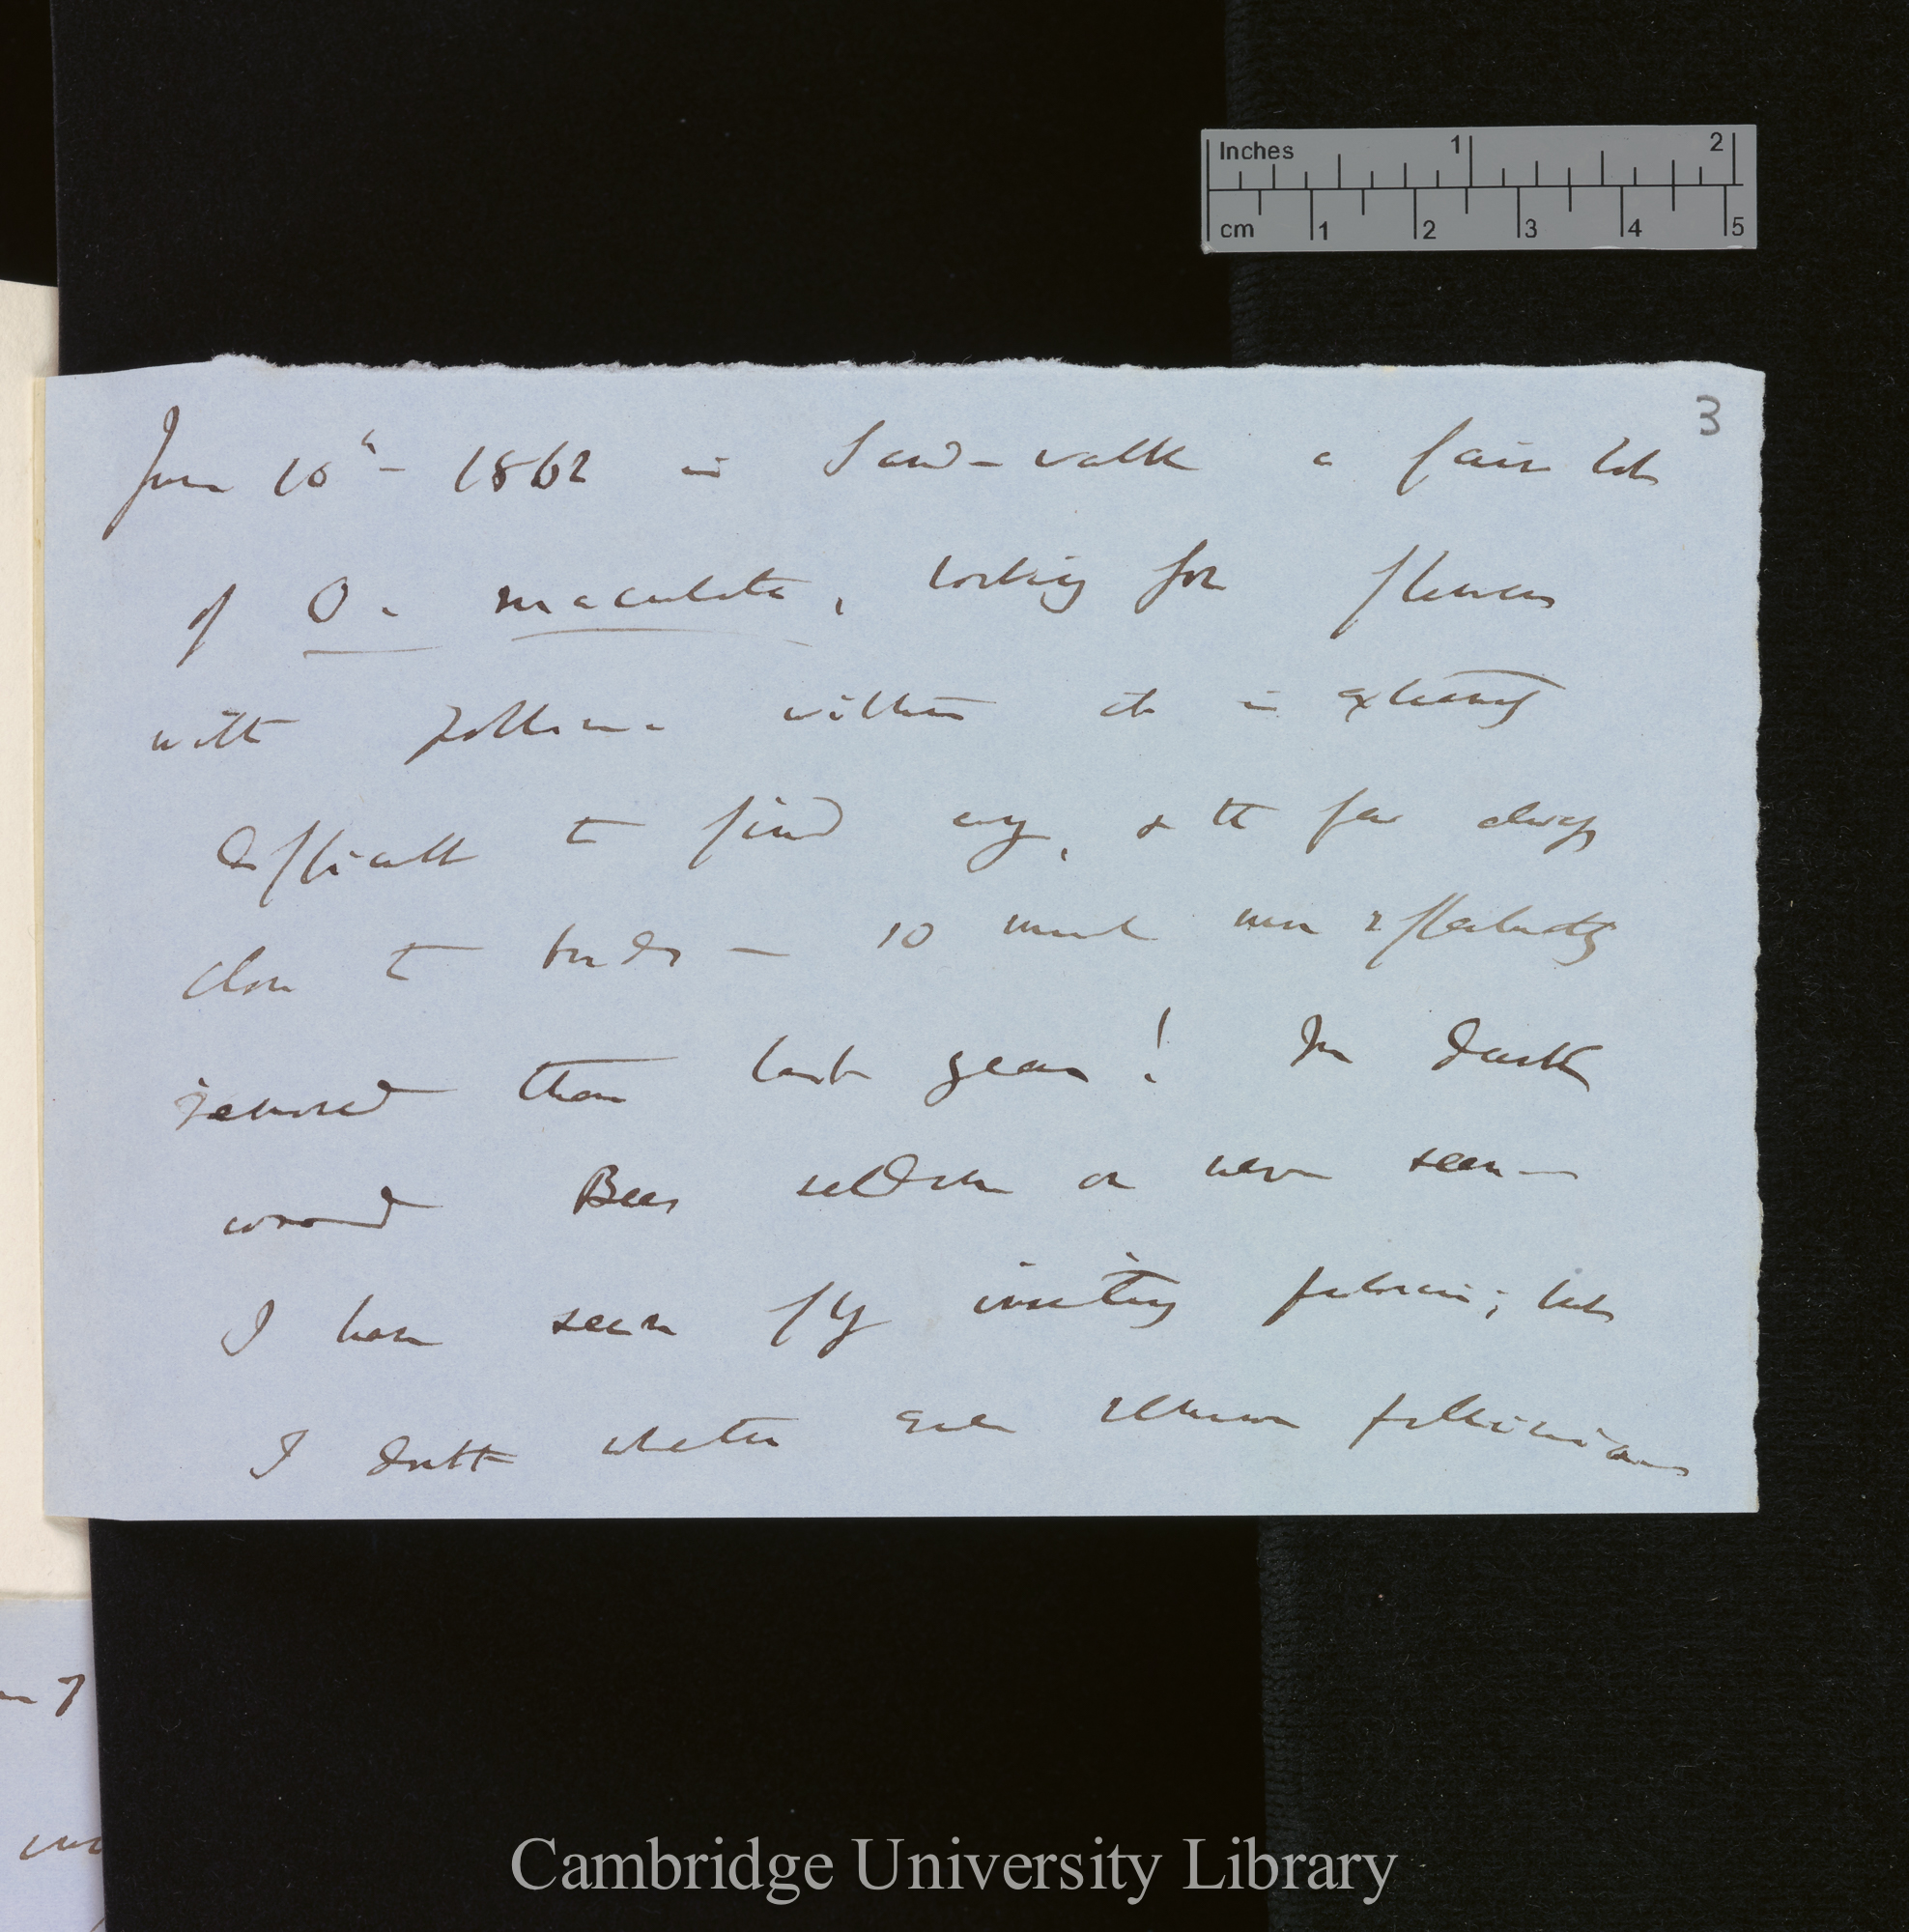 Inches 1 2
cm 1 2 3 4 5
3
June 10th — 1862 in Sand-walk a fair lot
of O. maculata, looking for flowers
with pollinia within it is extremely
difficult to find any, & the few always
close to buds — so much more effectually
removed than last year! In dark
wood Bees seldom or never seen —
I have seen fly visiting ; but
I doubt whether ever remove pollinia
Cambridge University Library